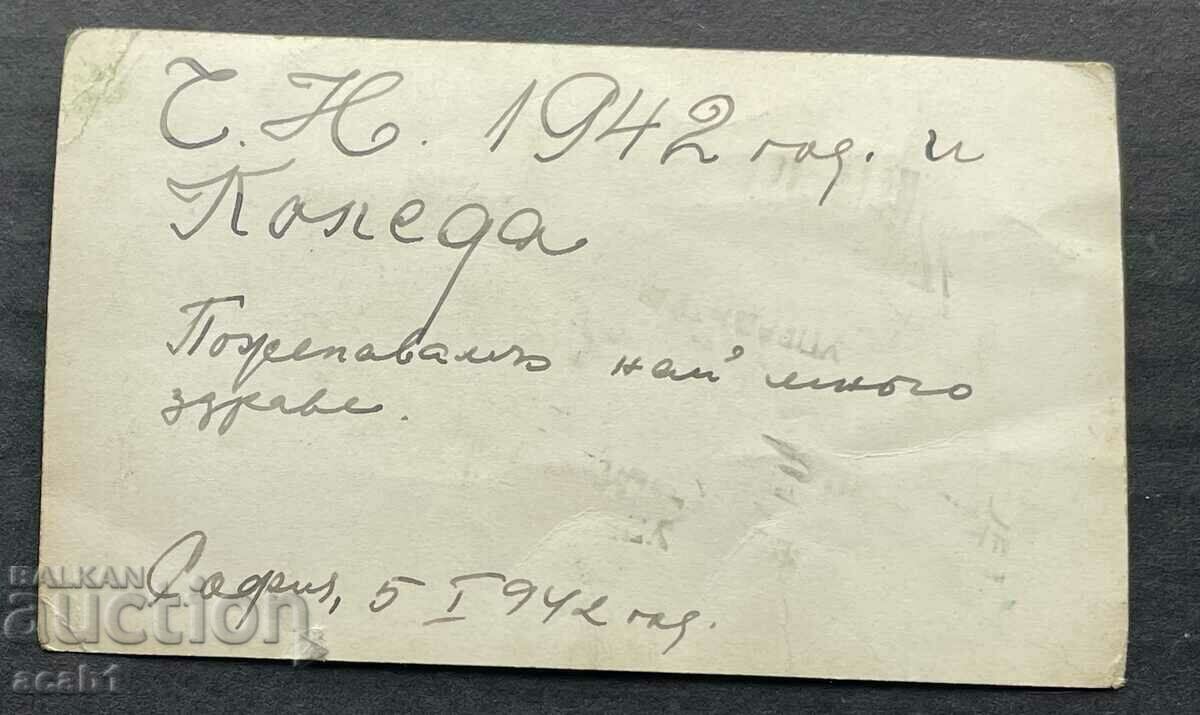 Ч.Н. 1942 год. и
Коледа
Пожелавамъ най много
здраве.
София, 5 I 942 год.
BALKAN
auction
acah1